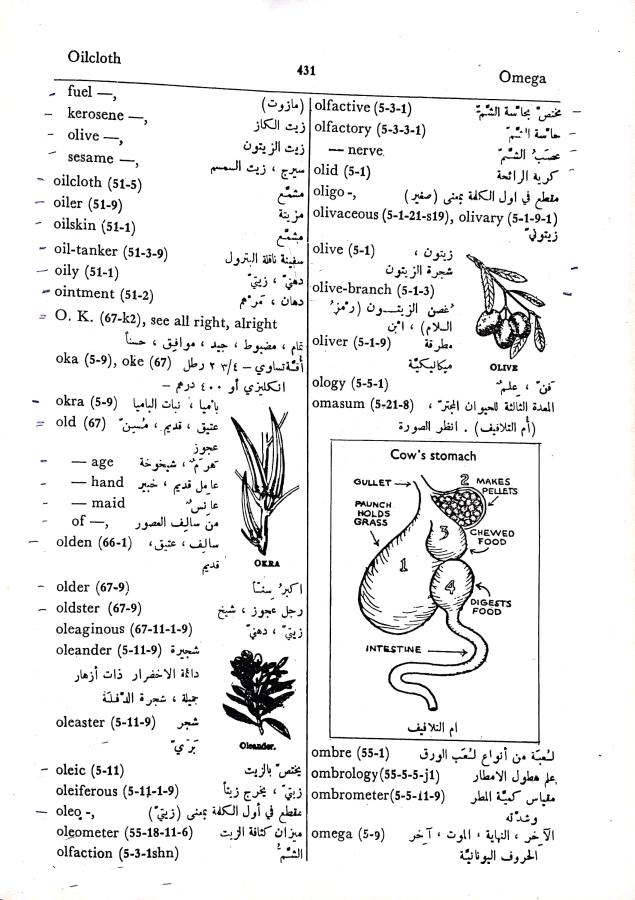 Oilcloth
431
Omega
fuel —, (مازوت)
kerosene —, زيت الكاز
olive —, زيت الزيتون
sesame —, سيرج ، زيت السمسم
oilcloth (51-5) مشمّع
oiler (51-9) مزيتة
oilskin (51-1) مشمّع
oil-tanker (51-3-9) سفينة ناقلة البترول
oily (51-1) دهنيّ ، زيتيّ
ointment (51-2) دهان ،
O. K. (67-k2), see all right, alright
تمام ، مضبوط ، جيد ، موافق ، حسناً
oka (5-9), oke (67) أقّة تساوي – ٣/٤ ٢ رطل
انكليزي أو ٤٠٠ درهم –
okra (5-9) باميا ، نبات الباميا
old (67) عتيق ، قديم ، مُسِنّ
عجوز
— age هرَم ، شيخوخة
— hand عامل قديم ، خبير
— maid عانس
of —, من سالف العصور
olden (66-1) سالف ، عتيق ،
قديم
OKRA
older (67-9) اكبر سنّاً
oldster (67-9) رجل عجوز ، شيخ
oleaginous (67-11-1-9) زيتيّ ، دهنيّ
oleander (5-11-9) شجيرة
دائمة الاخضرار ذات أزهار
جميلة ، شجرة الدّفلة
oleaster (5-11-9) شجر
بَرّيّ
Oleander.
oleic (5-11) يختصّ بالزيت
oleiferous (5-11-1-9) زيتيّ ، يخرج زيتاً
oleo -, مقطع في أول الكلمة بمعنى (زيتيّ)
oleometer (55-18-11-6) ميزان كثافة الزيت
olfaction (5-3-1shn) الشّمّ
olfactive (5-3-1) مختصّ بحاسة الشّمّ
olfactory (5-3-3-1) حاسة الشمّ
— nerve عصَبُ الشّمّ
olid (5-1) كريه الرائحة
oligo -, مقطع في اول الكلمة بمعنى (صغير)
olivaceous (5-1-21-s19), olivary (5-1-9-1)
زيتونيّ
olive (5-1) زيتون ،
شجرة الزيتون
olive-branch (5-1-3)
غصن الزيتون (رمزُ
السلام) ، ابن
oliver (5-1-9) مطرقة
ميكانيكيّة
OLIVE
ology (5-5-1) فنّ ، علم
omasum (5-21-8) المعدة الثالثة للحيوان المجترّ ،
(أم التلافيف) . انظر الصورة
Cow's stomach
GULLET
2 MAKES
PELLETS
PAUNCH
HOLDS
GRASS
3
CHEWED
FOOD
1
4
DIGESTS
FOOD
INTESTINE
ام التلافيف
ombre (55-1) لُعبَة من أنواع لُعَب الورق
ombrology (55-5-5-j1) علم هطول الامطار
ombrometer (5-5-11-9) مقياس كميّة المطر
وشدّته
omega (5-9) الآخر ، النهاية ، الموت ، آخر
الحروف اليونانيّة